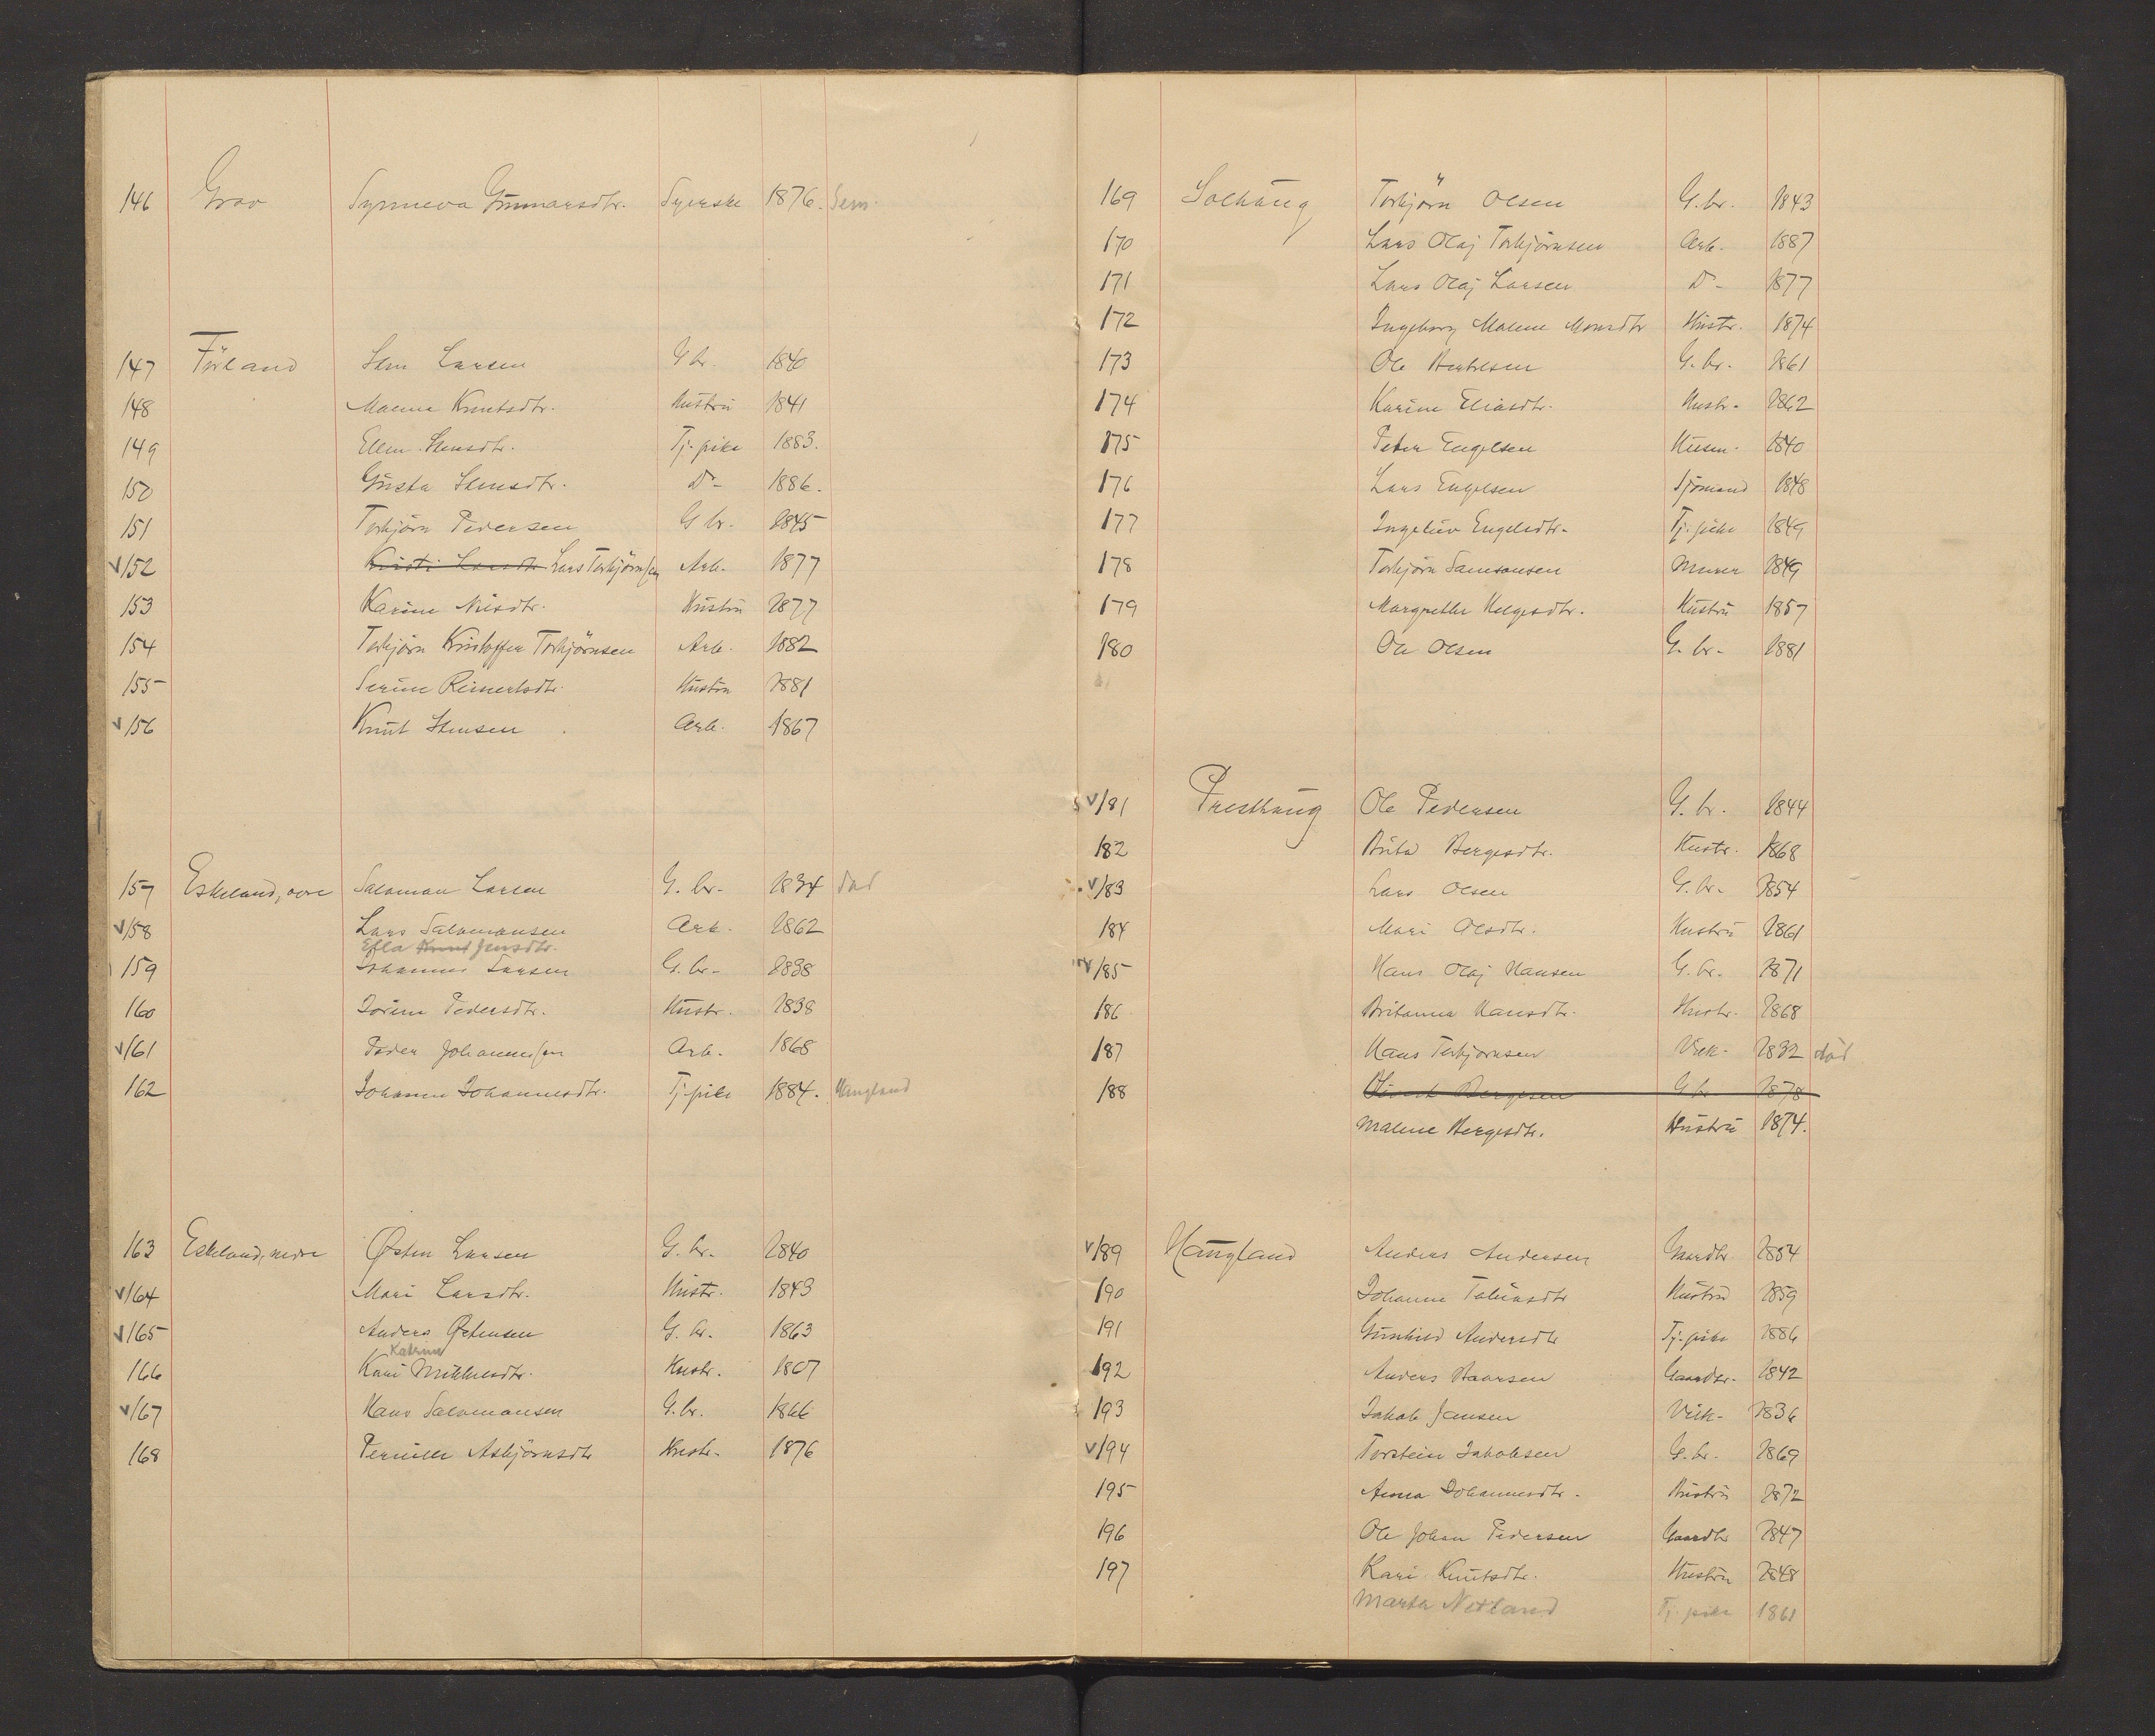 146 Grov Synneva Gunnarsdtr. Syerske 1876. Sem
147 Förland Sten Larsen G br. 1840
148 Malene Knutsdtr. Hustru 1841
149 Ellen Stensdtr. Tj. pike 1883.
150 Gusta Stensdtr. Do 1886.
151 Torbjörn Pedersen G br. 1845
V 152 Kristi Larsdtr Lars Torbjörnsen Arb. 1877
153 Karine Nilsdtr. Hustru 1877
154 Torbjörn Kristoffer Torbjörnsen Arb. 1882
155 Serine Reinertsdtr. Hustru 1881
V 156 Knut Stensen Arb. 1867
157 Eskeland, övre Salomon Larsen G. br. 1834 död
V 158 Lars Salomonsen Arb. 1862
Efla Knut Jensdtr.
159 Johannes Larsen G. br. 1838
160 Dorine Pedersdtr. Hustr. 1838
V 161 Peder Johannessen Arb. 1868
162 Johanne Johannesdtr. Tj. pike 1884. Haugland
163 Eskeland, nedre Østen Larsen G. br. 1840
V 164 Mari Larsdtr. Hustr. 1843
V 165 Anders Østensen G. br. 1863
Katrine
166 Kari Mikkelsdtr. Hustr. 1867
V 167 Hans Salomonsen G. br. 1866
168 Pernille Asbjörnsdtr Hustr. 1876
169 Solhaug Torbjörn Olsen G. br. 1843
170 Lars Olaj Torbjörnsen Arb. 1887
171 Lars Olaj Larsen Do 1877
172 Ingeborg Malene Monsdtr Hustr. 1874
173 Ole Bertelsen G. br. 1861
174 Karine Eliasdtr. Hustr. 1862
175 Peter Engelsen Husm. 1840
176 Lars Engelsen Sjömand 1848
177 Ingeliv Engelsdtr. Tj. pike 1849
178 Torbjörn Samsonsen Murer 1849
179 Margrethe Helgesdtr. Hustru 1857
180 Ole Olsen G. br. 1881
V 181 Presthaug Ole Pedersen G. br. 1844
182 Brita Bergesdtr. Hustr. 1868
V 183 Lars Olsen G. br. 1854
184 Mari Olsdtr. Hustru 1861
V 185 Hans Olaj Hansen G. br. 1871
186 Britanna Hansdtr. Hustr. 1868
187 Hans Torbjörnsen Vilk. 1832 död
188 Sivert Bergesen G br 1878
Malene Bergesdtr. Hustru 1874.
V 189 Haugland Anders Andersen Gaardbr. 1854
190 Johanne Tobiasdtr Hustru 1859
191 Gunhild Andersdtr Tj. pike 1886
192 Anders Baarsen Gaardbr. 1842
193 Jakob Jansen Vilk. 1836
V 194 Torstein Jakobsen G. br. 1869
195 Anna Johannesdtr. Hustru 1872
196 Ole Johan Pedersen Gaardbr 1847
197 Kari Knutsdtr. Hustru 1848
Marta Netland Tj. pike 1861